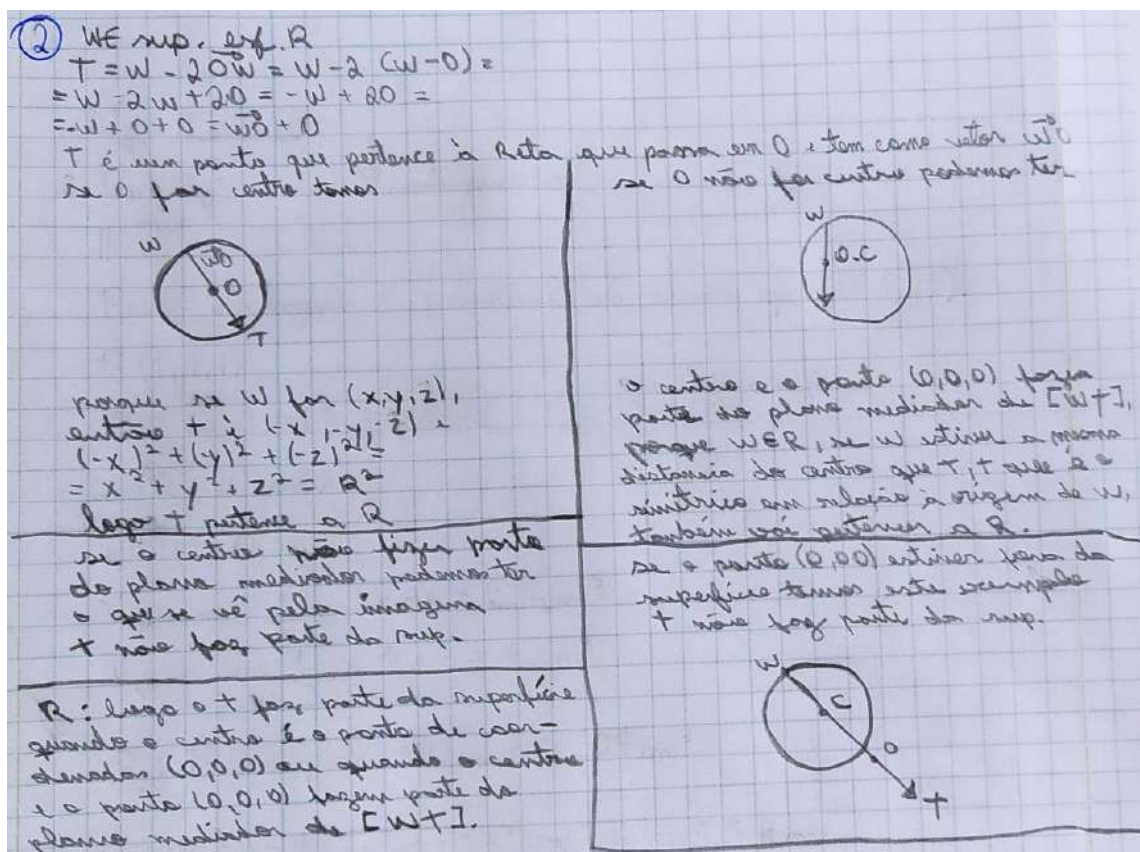 2 WE sup. esf. R
T = W - 2OW = W - 2 (W - O) =
= W - 2W + 2O = -W + 2O =
= -W + O + O = WO + O
T é um ponto que pertence à Reta que passa em O e tem como vetor WO
se O for centro temos
W
WO
O
T
porque se W for (x,y,z),
então T é (-x, -y, -z) e
(-x)² + (y)² + (-z)² =
= x² + y² + z² = R²
logo T pertence a R
se o centro não fizer parte
do plano mediador podemos ter
o que se vê pela imagem
T não faz parte da sup.
R: logo o T faz parte da superfície
quando o centro é o ponto de coor-
denadas (0,0,0) ou quando o centro
e o ponto (0,0,0) fazem parte do
plano mediador de [WT].
se O não for centro podemos ter
W
O.C
o centro e o ponto (0,0,0) fazem
parte do plano mediador de [WT],
porque W∈R, se W estiver a mesma
distancia do centro que T, T que é o
simétrico em relação à origem de W,
também vai pertencer a R.
se o ponto (0,00) estiver fora da
superfície temos este exemplo
T não faz parte da sup.
W
C
O
T